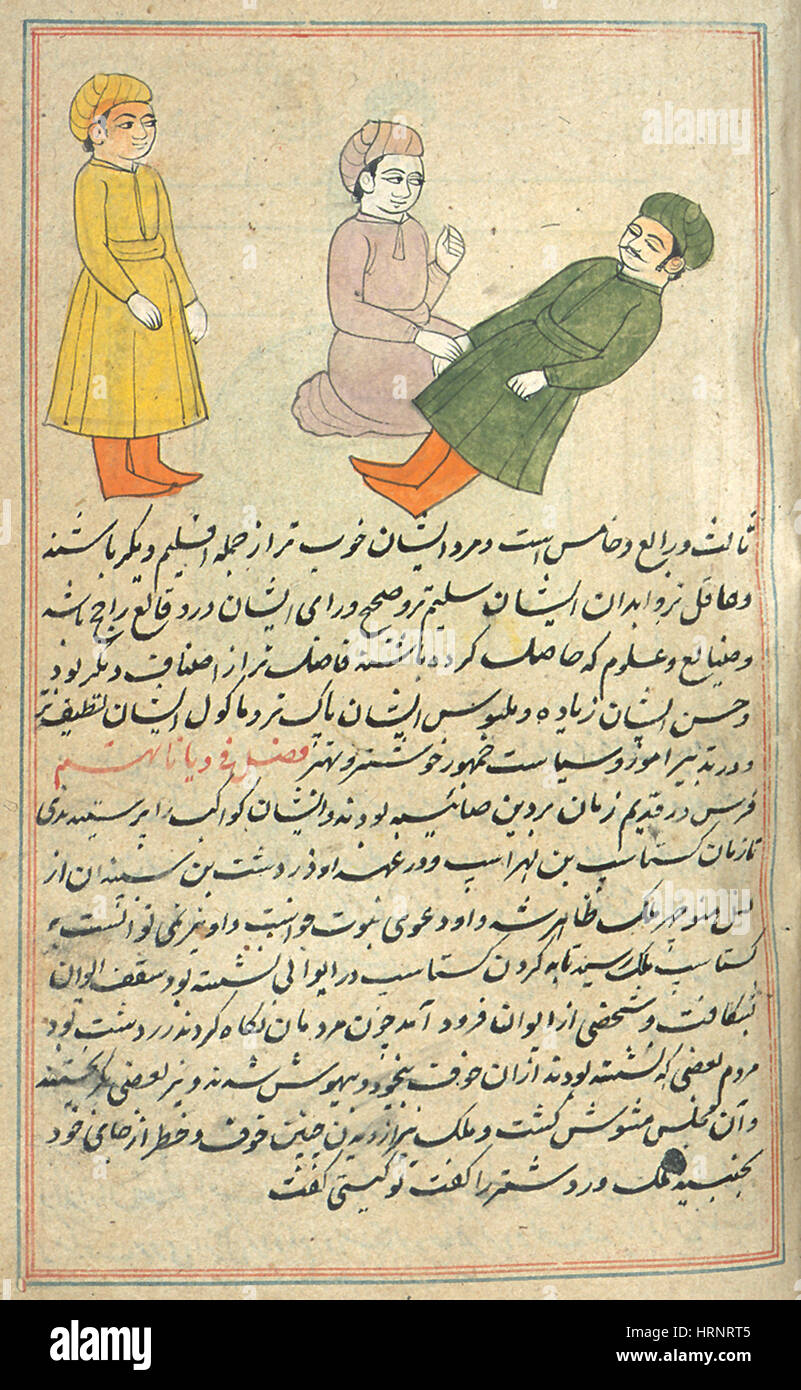 ثالث و رابع و خامس است و مردم ایشان خوب تر از جمله اقلیم دیگر باشند
و عاقل تر و ابدان ایشان سلیم تر و صحیح و رای ایشان در وقائع راجح باشد
و صنائع و علوم که حاصل کرده باشند فاضل تر از اصناف دیگر بود
و حسن ایشان زیاده و ملبوس ایشان پاک تر و ماکول ایشان لطیف تر
و در تدبیر امور و سیاست جمهور خوشتر و بهتر فصل فی دیاناتهم
فرس در قدیم زمان بر دین صابئیه بودند و ایشان کواکب را پرستیدندی
تا زمان کستاسب بن لهراسب و در عهد او زردشت بن از
ملک ظاهر شد و او دعوی نبوت خواست و او نیز نمی توانست
کستاسب ملک رسید تا به کردن کستاسب در ایوانی نشسته بود سقف ایوان
بشکافت و شخصی از ایوان فرود آمد چون مردمان نکاه کردند زردشت بود
مردم بعضی که نشسته بودند از آن خوف بیخود و بیهوش شدند و نیز بعضی بگریختند
و آن مجلس مشوش کشت و ملک نیز از دیدن چنین خوف و خطر از جای خود
بجنبید ملک زردشت را کفت تو کیستی کفت
alamy stock photo
HRNRT5
www.alamy.com